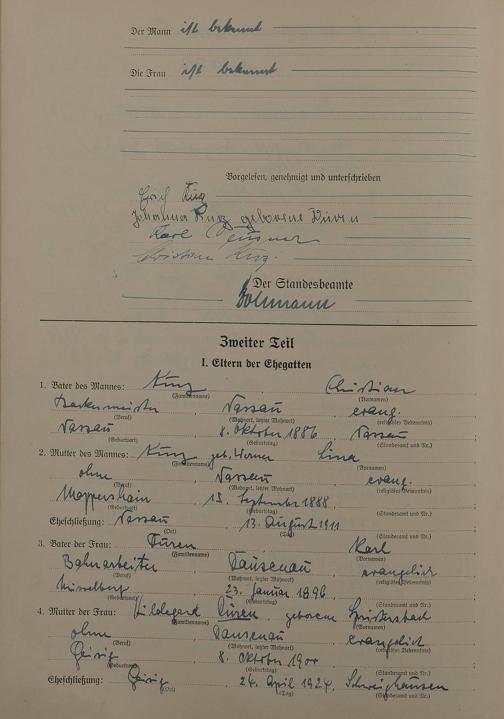 Der Mann ist bekannt
Die Frau ist bekannt
Vorgelesen, genehmigt und unterschrieben
Erich Kurz
Johanna Kurz geborene
Karl
Christian Kurz.
Der Standesbeamte
Zweiter Teil
I. Eltern der Ehegatten
1. Vater des Mannes: Kurz Christian
(Familienname) (Vornamen)
Nassau evang.
(Beruf) (Wohnort, letzter Wohnort) (religiöses Bekenntnis)
Nassau 8. Oktober 1886 Nassau
(Geburtsort) (Geburtstag) (Standesamt und Nr.)
2. Mutter des Mannes: Kurz geb. Lina
(Familienname) (Vornamen)
ohne Nassau evang.
(Beruf) (Wohnort, letzter Wohnort) (religiöses Bekenntnis)
15. September 1888
(Geburtsort) (Geburtstag) (Standesamt und Nr.)
Eheschließung: Nassau 13. August 1911
(Ort) (Tag) (Standesamt und Nr.)
3. Vater der Frau: Karl
(Familienname) (Vornamen)
Bahnarbeiter Dausenau evangelisch
(Beruf) (Wohnort, letzter Wohnort) (religiöses Bekenntnis)
23. Januar 1896
(Geburtsort) (Geburtstag) (Standesamt und Nr.)
4. Mutter der Frau: Hildegard geborene
(Familienname) (Vornamen)
ohne Dausenau evangelisch
(Beruf) (Wohnort, letzter Wohnort) (religiöses Bekenntnis)
8. Oktober 1900
(Geburtsort) (Geburtstag) (Standesamt und Nr.)
Eheschließung: 24. April 1924 Schweighausen
(Ort) (Tag) (Standesamt und Nr.)